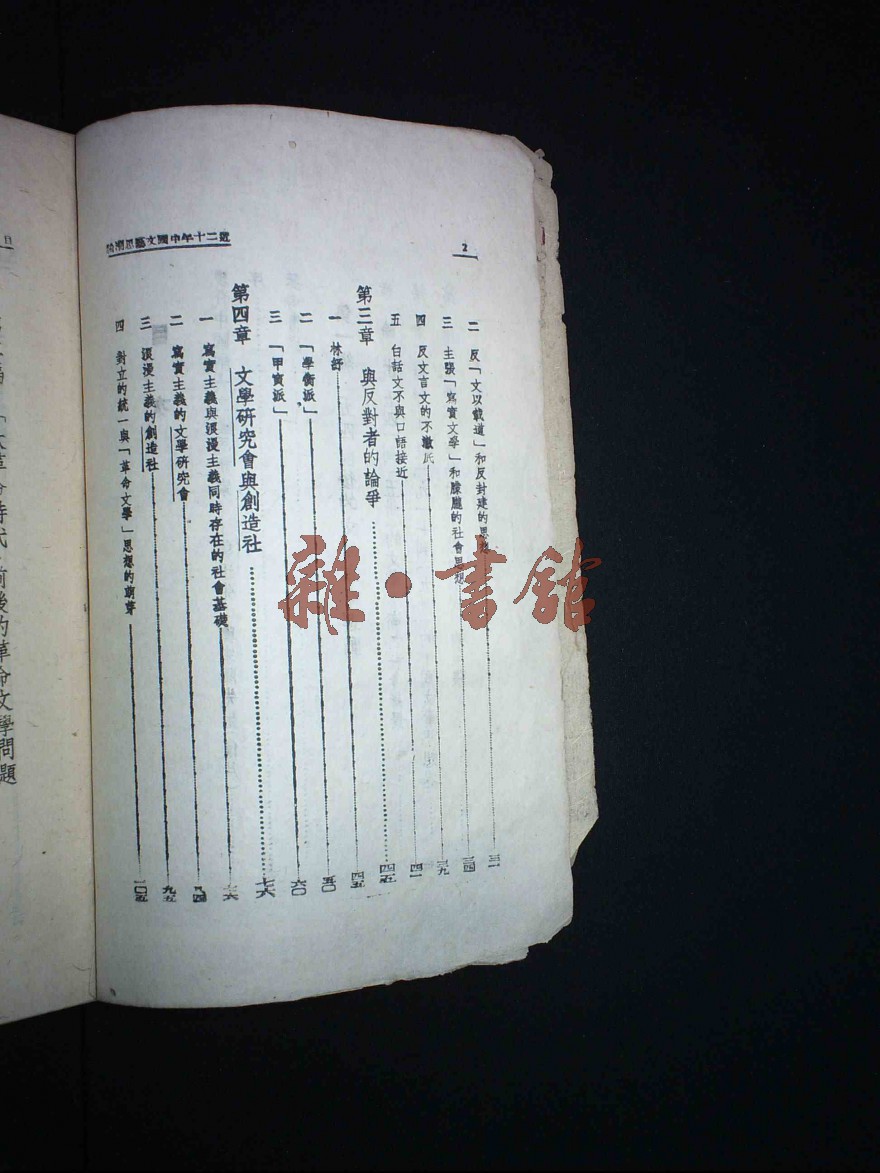 近二十年中國文藝思潮論
2
二 反「文以載道」和反封建的思想 三一
三 主張「寫實文學」和朦朧的社會思想 三四
四 反文言文的不澈底 三九
五 白話文不與口語接近 四一
第三章 與反對者的論爭 四五
一 林紓 四五
二 「學衡派」 五〇
三 「甲寅派」 六〇
第四章 文學研究會與創造社 七六
一 寫實主義與浪漫主義同時存在的社會基礎 七六
二 寫實主義的文學研究會 八四
三 浪漫主義的創造社 九五
四 對立的統一與「革命文學」思想的萌芽 一〇五
雜·書館
目
前後的革命文學問題